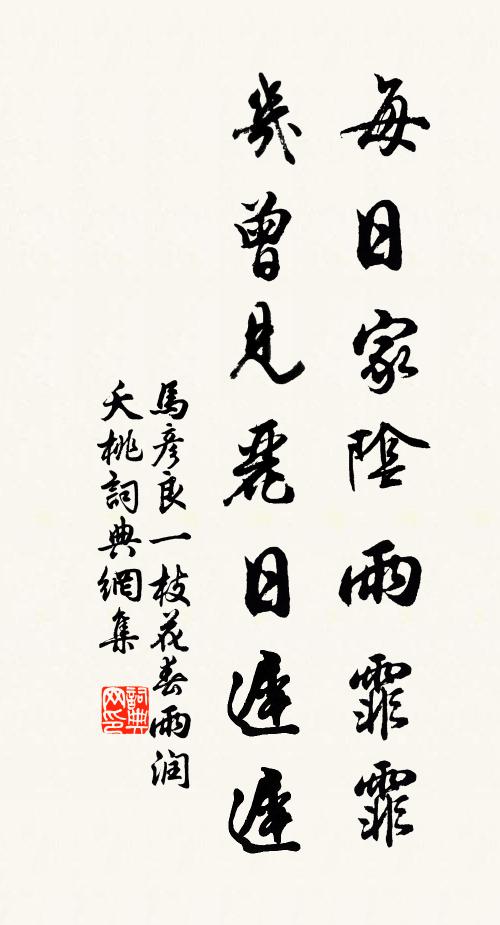 每日家陰雨霏霏
幾曾見麗日遲遲
馬彥良一枝花春雨润
夭桃詞典網集
詞典网印